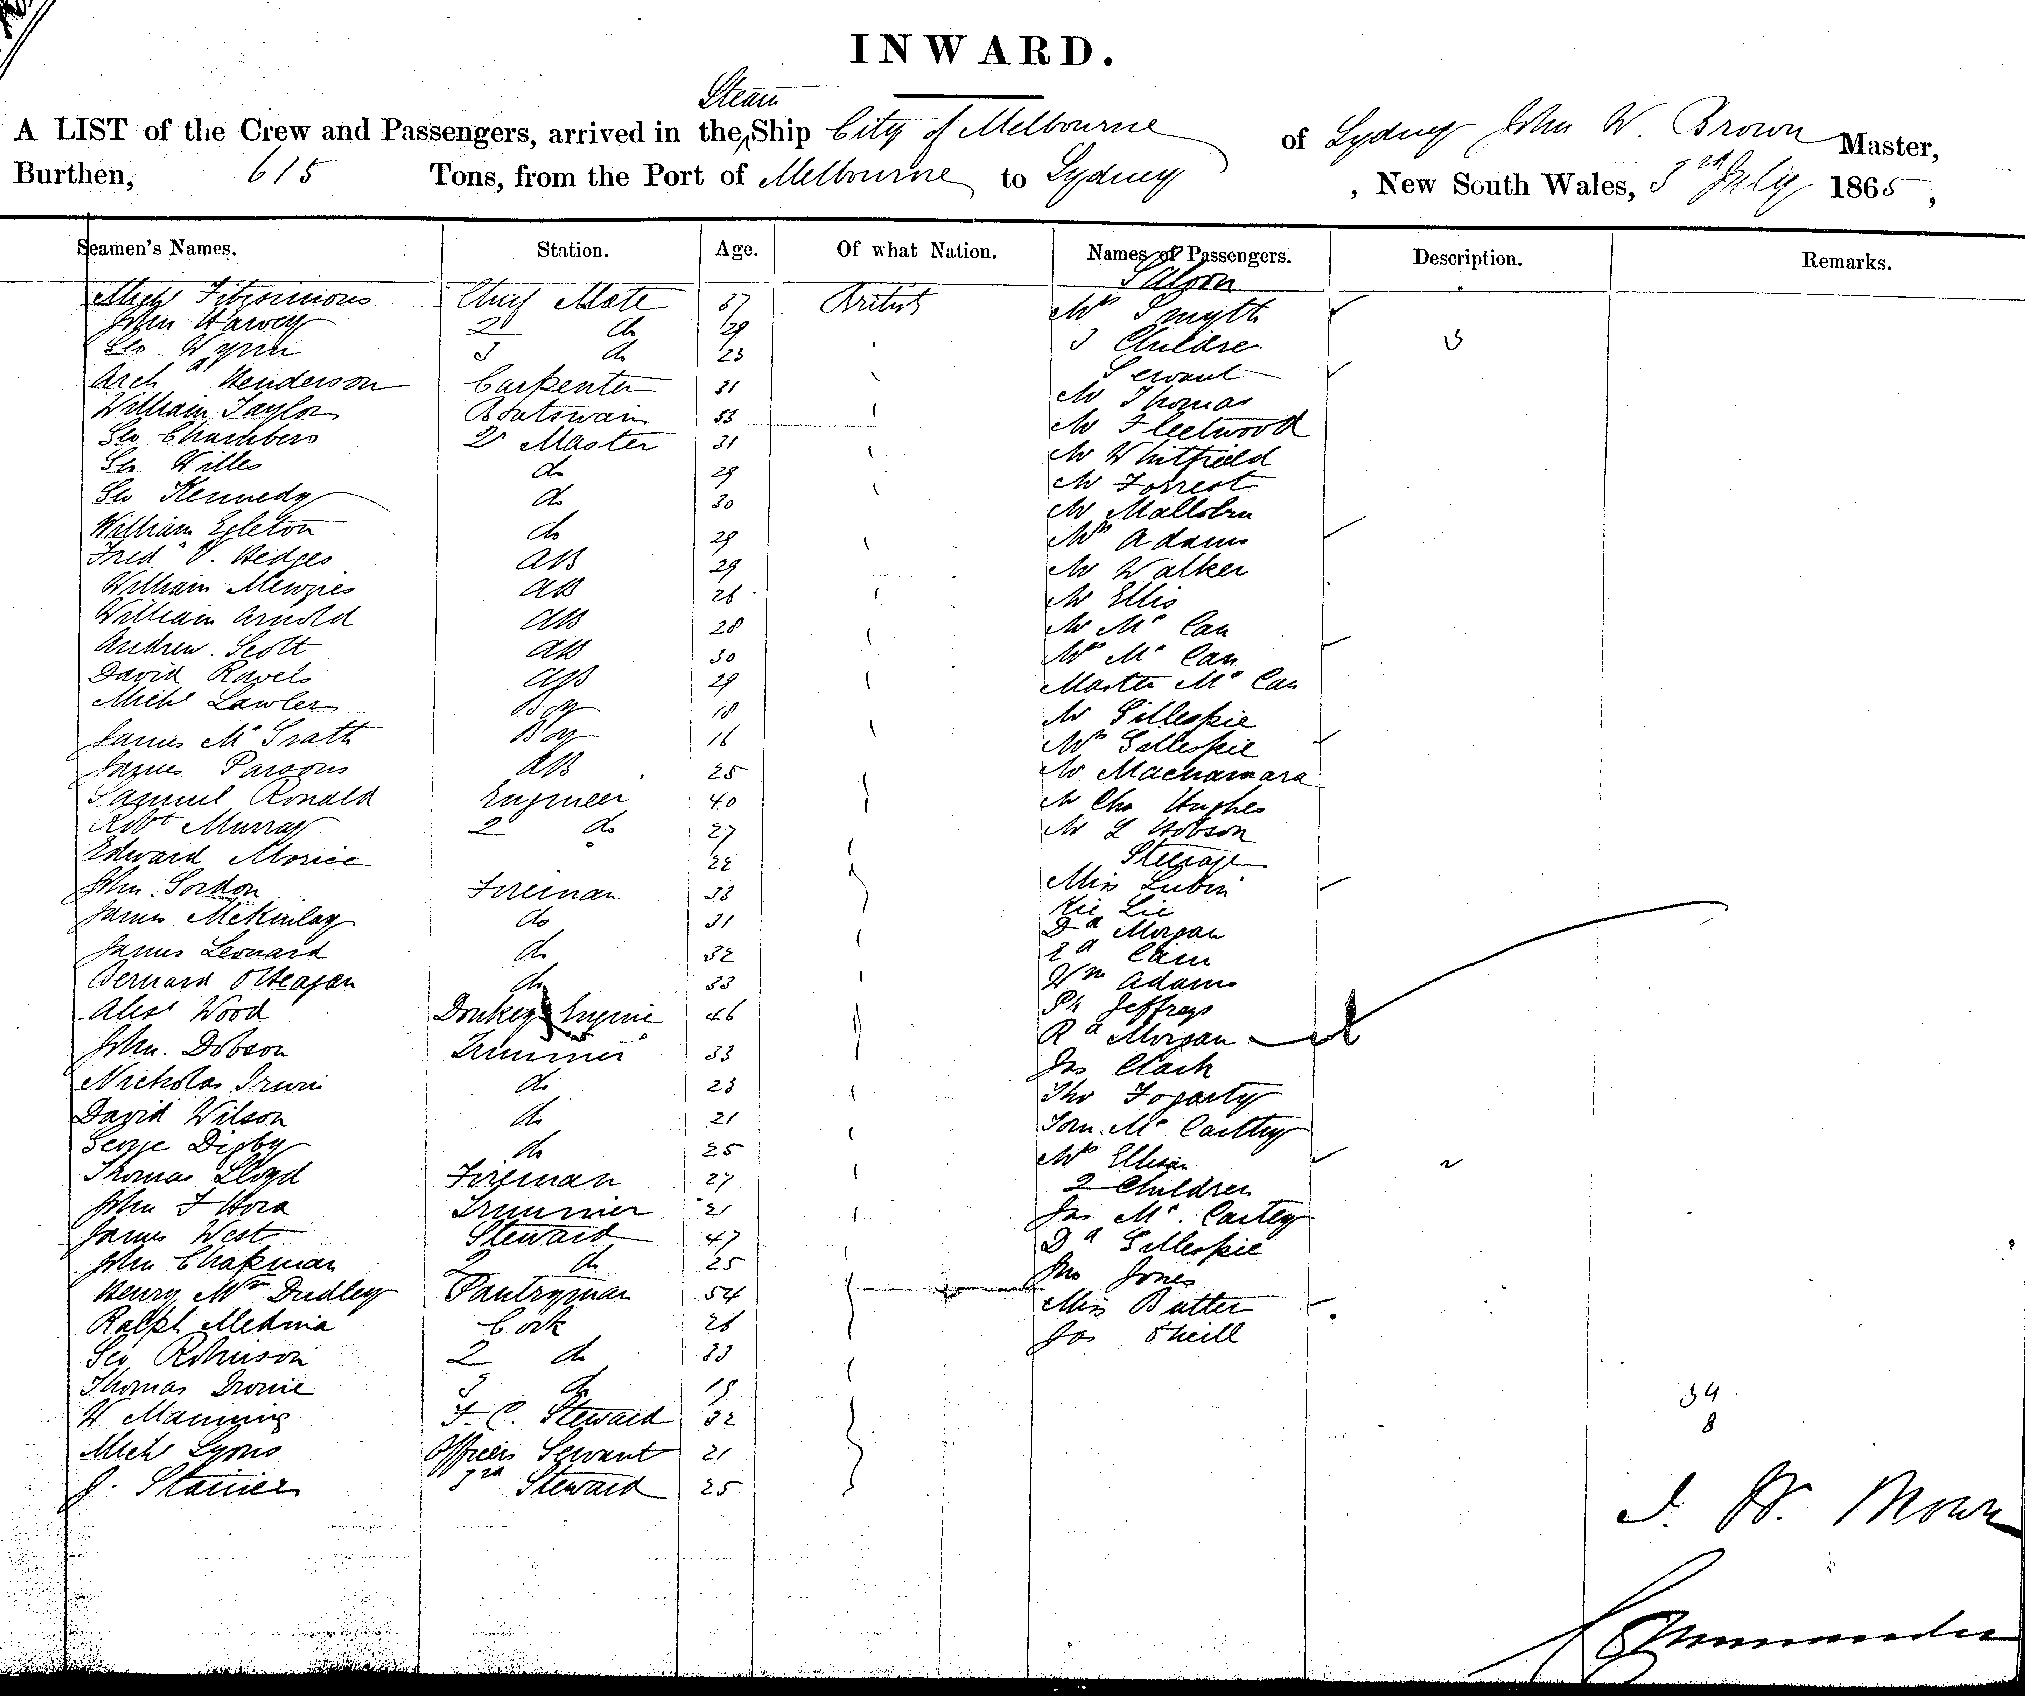 INWARD.
Steam
A LIST of the Crew and Passengers, arrived in the Ship City of Melbourne of Sydney John W. Brown Master,
Burthen, 615 Tons, from the Port of Melbourne to Sydney, New South Wales, 3rd July 1865,
Seamen's Names. Station. Age. Of what Nation. Names of Passengers. Description. Remarks.
Saloon
Michl Fitzsimions Chief Mate 37 British Mrs Smyth
John Harvey 2 do 29 3 Childre 3
Geo Wynn 3 do 23 Servant
Archd Henderson Carpenter 31 Mr Thomas
William Taylor Boatswain 53 Mr Fleetwood
Geo Chambers 2r Master 31 Mr Whitfield
Geo Willes do 29 Mr Forrest
Geo Kennedy do 30 Mr
William Egleton do 29 Mrs Adams
Fredk V. Hedges AB 29 Mr Walker
William Menzies AB 26 Mr Ellis
William Arnold AB 28 Mr Mc Can
Andrew Scott AB 30 Mrs Mc Can
David Rowels AB 29 Master Mc Can
Michl Lawler Boy 18 Mr Gillespie
James Mc Grath Boy 16 Mrs Gillespie
James Parsons AB 25 Mr Macnamara
Samuel Ronald Engineer 40 Mr Chs Hughes
Robt Murray 2 do 27 Mr L Hobson
Edward Morice 22 Steerage
John Gordon Fireman 33 Miss Lubin
James McKinlay do 31 Lie
James Leonard do 32 Dd Morgan
Bernard OHeagan do 33 Ed Cain
Alexr Wood Donkey Engine 46 Wm Adams
John Dobson Trimmer 33 Ph Jeffreys
Nicholas Irwin do 23 Rd Morgan
David Wilson do 21 Jas Clark
George Digby do 25 Tho Fogarty
Thomas Lloyd Fireman 27 Tom Mc Carthy
John F Hora Trimmer 21 Mrs Ellison
James West Steward 47 2 Children
John Chapman 2 do 25 Jas Mc Cartey
Henry Wm Dudley Pantryman 54 Dd Gillespie
Ralph Medina Cook 26 Jno Jones
Geo Robinson 2 do 33 Miss Butter
Thomas 3 do 19 Jas Sheill
W Manning F. C. Steward 32
Michl Lyons Officers Servant 21
J. Stainer 3rd Steward 25
34
8
J. W. Brown
Commander